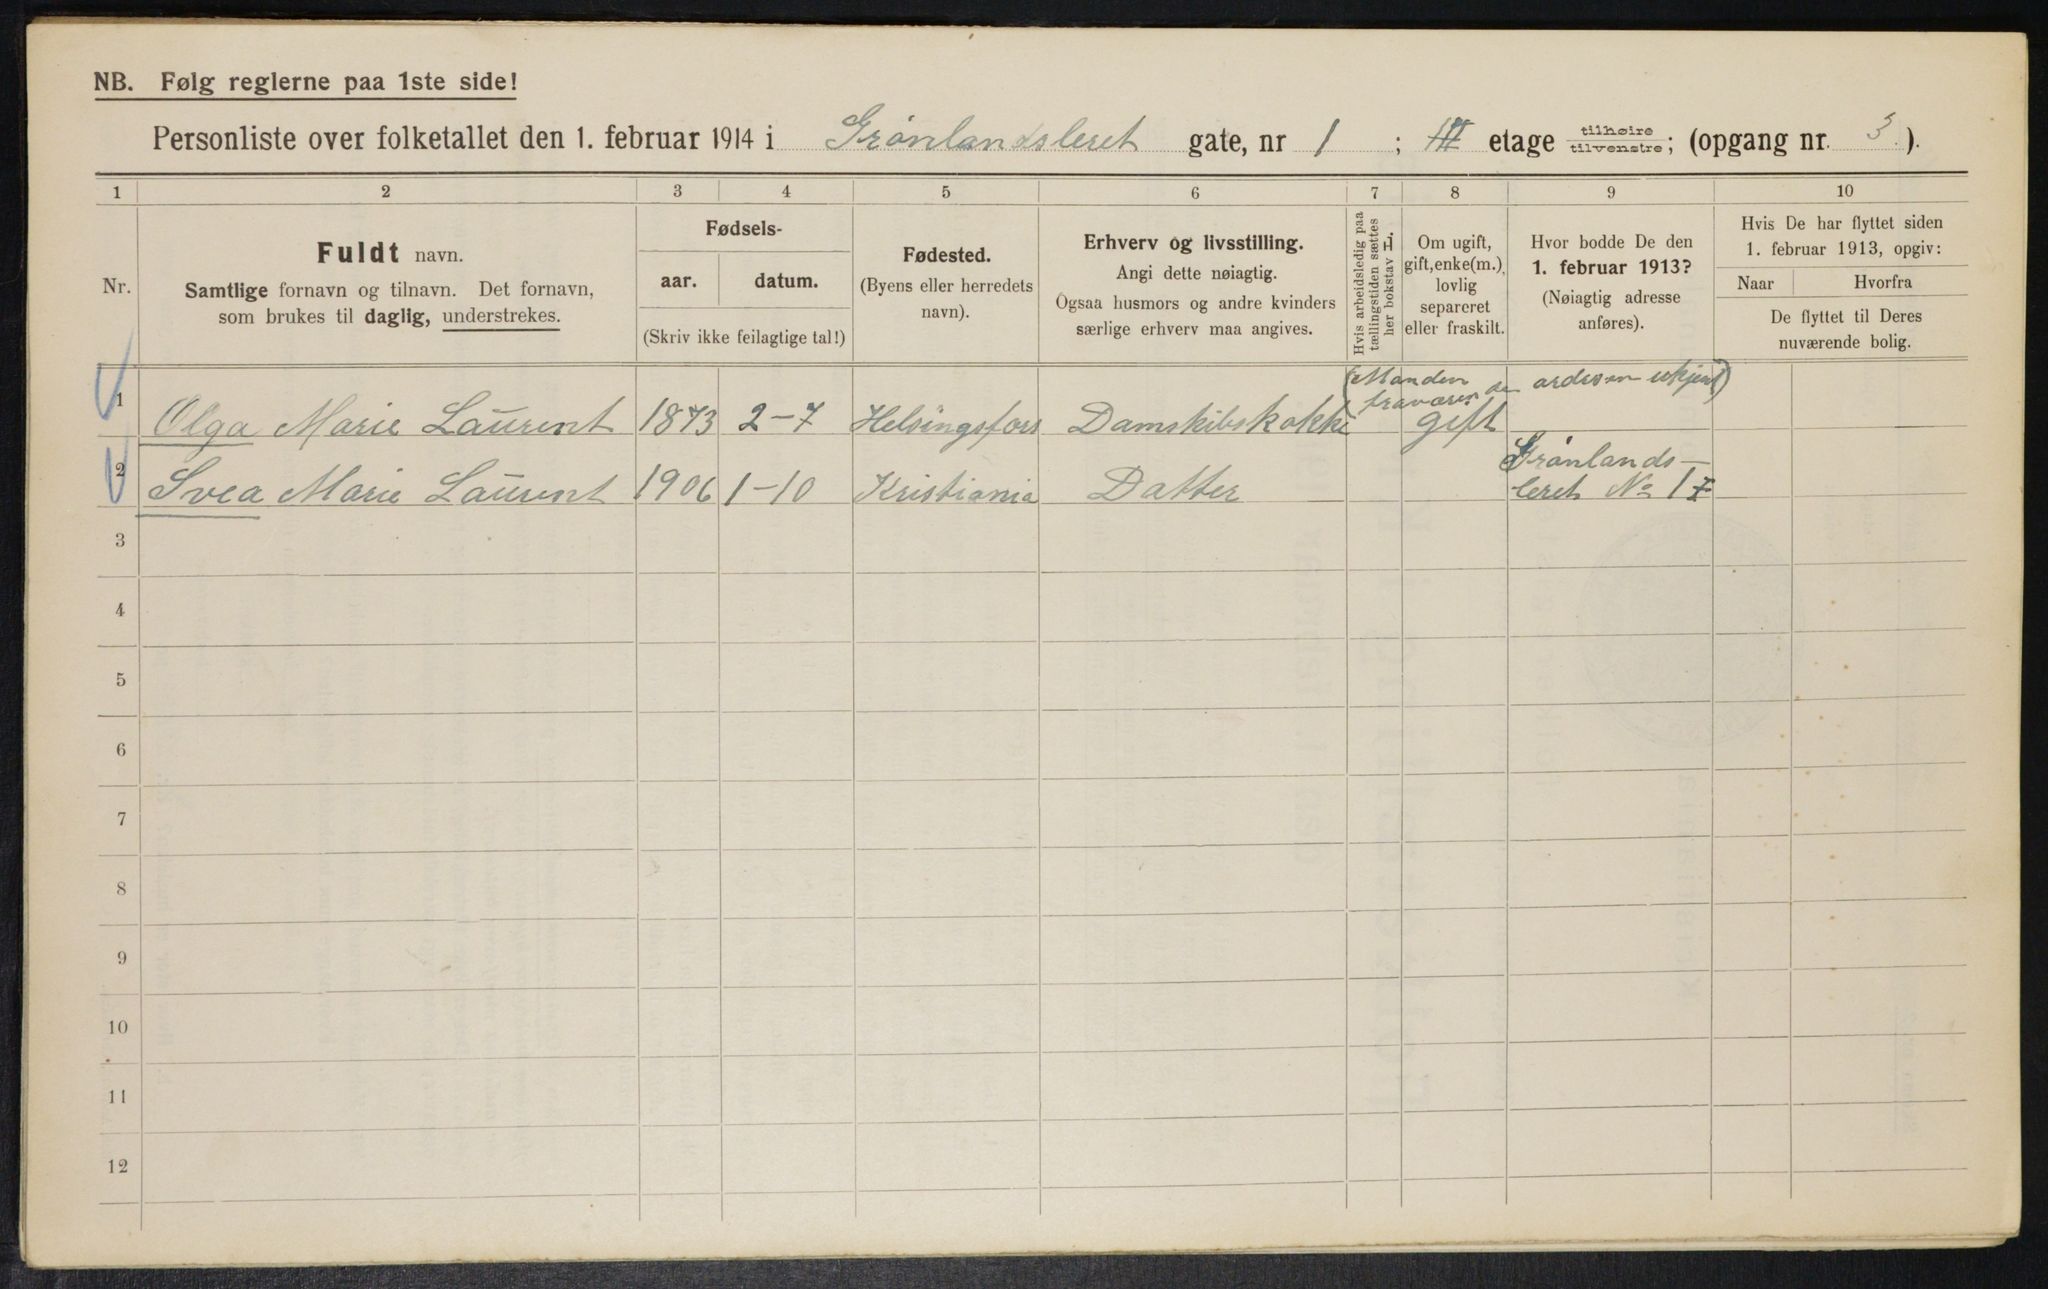 NB. Følg reglerne paa 1ste side!
Personliste over folketallet den 1. februar 1914 i Grønlandsleret gate, nr 1 ; III etage tilhøire tilvenstre; (opgang nr. 3.).
1 2 3 4 5 6 7 8 9 10
Nr.
Fuldt navn.
Samtlige fornavn og tilnavn. Det fornavn,
som brukes til daglig, understrekes.
Fødsels-
aar. datum.
(Skriv ikke feilagtige tal!)
Fødested.
(Byens eller herredets
navn).
Erhverv og livsstilling.
Angi dette nøiagtig.
Ogsaa husmors og andre kvinders
særlige erhverv maa angives.
Hvis arbeidsledig paa
tællingstiden sættes
her bokstav L.
Om ugift,
gift, enke(m.),
lovlig
separeret
eller fraskilt.
Hvor bodde De den
1. februar 1913?
(Nøiagtig adresse
anføres).
Hvis De har flyttet siden
1. februar 1913, opgiv:
Naar Hvorfra
De flyttet til Deres
nuværende bolig.
(Manden ukjent)
1 Olga Marie Laurent 1873 2-7 Helsingsfors Damskibskokke gift
2 Svea Marie Laurent 1906 1-10 Kristiania Datter Grønlands-
leret No 1
3
4
5
6
7
8
9
10
11
12